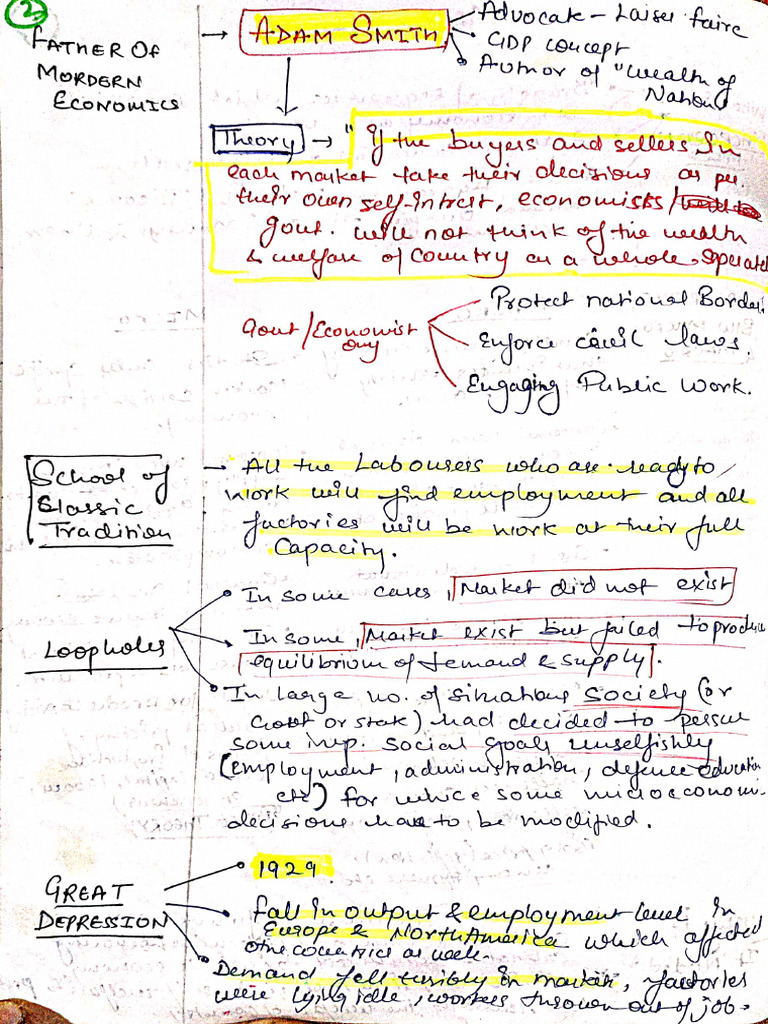 2
FATHER OF
MORDERN
ECONOMICS
→ ADAM SMITH
Advocate - Laiser faire
GDP concept
Author of "Wealth of
Nation
Theory → "If the buyers and sellers in
each market take their decisions as per
their own self-intrest, economists/
gout. will not think of the wealth
& welfare of country as a whole. Seperate
Gout/Economist
only
Protect national Border.
Enforce civil laws.
Engaging Public Work.
School of
Classic
Tradition
→ All the Labousers who are ready to
work will find employment and all
factories will be work at their full
Capacity.
Loopholes
• In some cases, Market did not exist
• In some, Market exist but failed to produce
equilibrium of demand & supply.
• In large no. of situations society (or
Govt or state) had decided to persue
some imp. social goals unselfishly
(employment, administration, defence education
etc) for which some microeconomi.
decisions has to be modified.
GREAT
DEPRESSION
• 1929
• fall in output & employment level in
Europe & North America which affected
othe countries as well.
• Demand fell terribly in market, factories
were lying idle, workers thrown out of job.